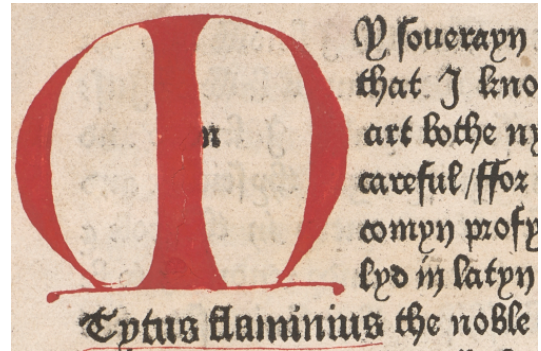 M Y souerayn
that I kno
m art bothe ny
careful/ffor
comyn profy
lyd in latyn
Tytus flaminius the noble